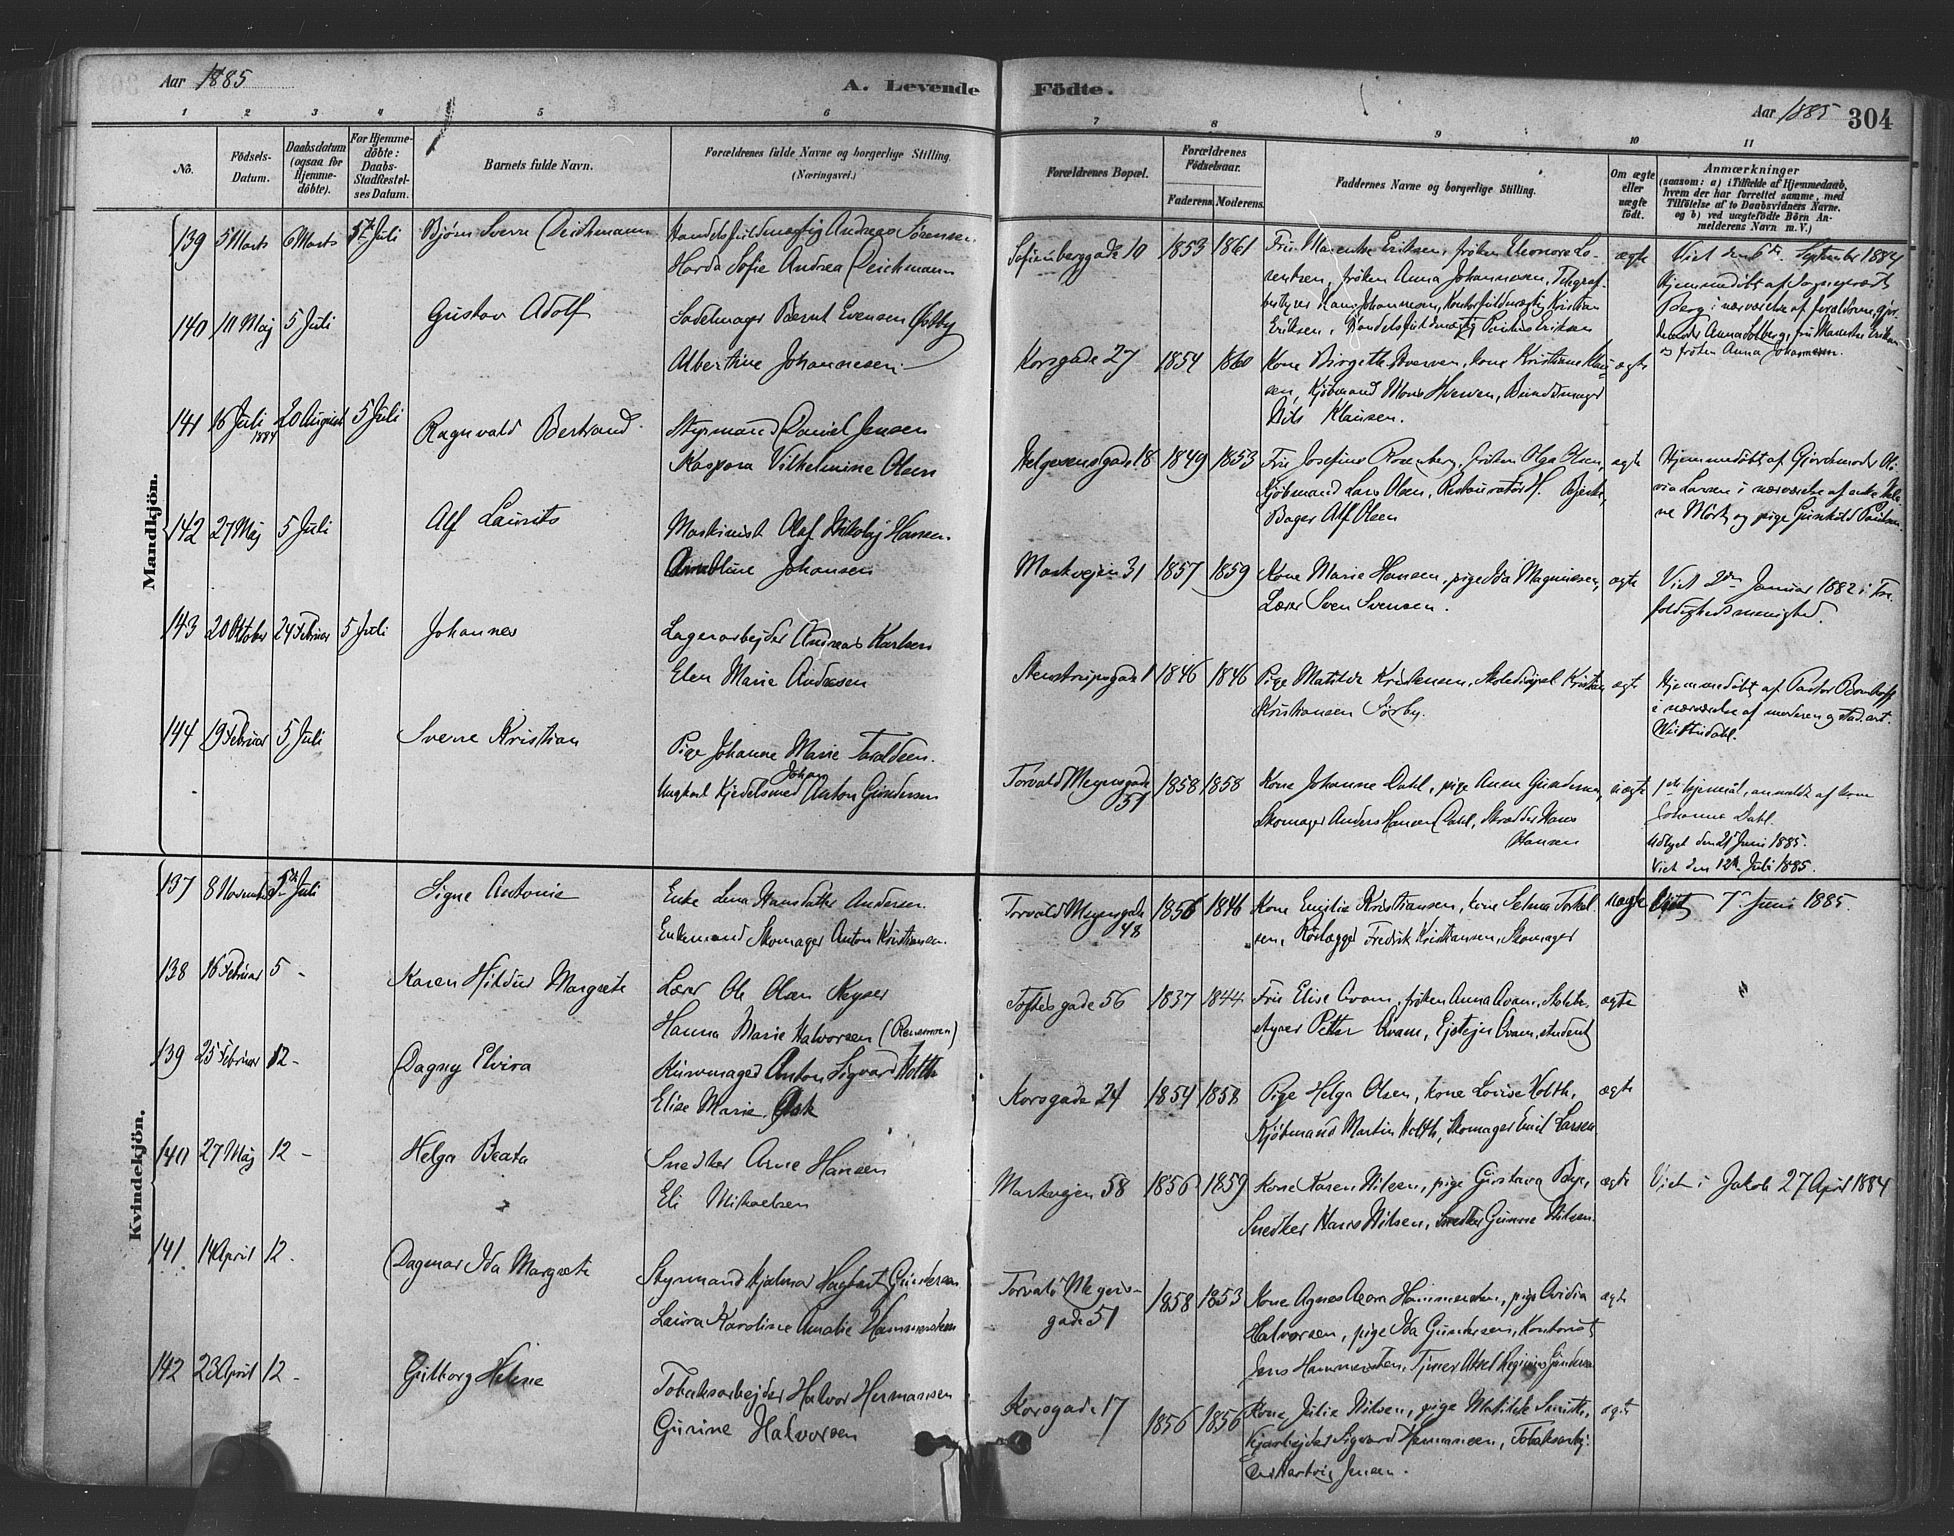 Aar 1885
A. Levende
Födte.
Aar 1885
304
1 2 3 4 5 6 7 8 9 10 11
No.
Födsels-
Datum.
Daabsdatum
(ogsaa for
Hjemme-
döbte).
For Hjemme-
döbte:
Daabs-
Stadfæstel-
ses Datum.
Barnets fulde Navn.
Forældrenes fulde Navne og borgerlige Stilling.
(Næringsvei.)
Forældrenes Bopæl.
Forældrenes
Födselsaar.
Faderens Moderens
Faddernes Navne og borgerlige Stilling.
Om ægte
eller
uægte
födt.
Anmærkninger
(saasom: a) i Tilfælde af Hjemmedaab,
hvem der har forrettet samme, med
Tilföielse af to Daabsvidners Navne.
og b) ved uægtefödte Börn An-
melderens Navn m.V.)
Mandkjön.
139 5 Marts 6 Marts 5te Juli Bjørn Sverre Deichmann
Handelsfuldmægtig Andreas Sörensen
Horda Sofie Andrea Deichmann
Sofienberggade 10 1853 1861
Fru Marenthe Eriksen, fröken Eleonora Lo-
rentsen, fröken Anna Johannesen, Telegraf-
bestyrer Hans Johannesen, Kontorfuldmægtig Kristian
Eriksen, Handelsfuldmægtig Eriksen
ægte
Viet den 6te September 1884
Hjemmedöbt af Sogneprest
Berg i nærværelse af forældrene, gjor-
demoder Anna Solberg, fru Marenthe Eriksen
og fröken Anna Johannesen.
140 10 Maj 5 Juli Gustav Adolf
Sadelmager Bernt Evensen Østby
Albertine Johannesen
Korsgade 27 1854 1860
Kone Birgithe Hverven, kone Kristiane Klau-
sen, Kjöbmand Hverven, Bundtmager
Nils Klausen.
ægte
141 16 Juli 1884 20 August 5 Juli Ragnvald Bertrand
Styrmand Daniel Jensen
Kaspara Vilhelmine Olsen
Helgesensgade 18 1849 1853
Fru Josefine Rosenberg, fröken Olga Olsen,
Kjöbmand Lars Olsen, Restauratör H. Bjerke,
Bager Alf Olsen
ægte
Hjemmedöbt af Gjordemoder Oli-
via Larsen i nærværelse af enke Hele-
ne Mörk og pige Gunhild Paulsen
142 27 Maj 5 Juli Alf Laurits
Maskinist Olaf Nikolaj Hansen.
Anna Oline Johansen
Markvejen 31 1857 1859
Kone Marie Hansen, pige Ida Magnussen,
Lærer Sven Svensen.
ægte
Viet 2den Januar 1882 i Tre-
foldighedsmenighed.
143 20 Oktober 24 Februar 5 Juli Johannes
Lagerarbejder Andreas Karlsen
Elen Marie Andresen
Stenstrupsgade 1 1846 1846
Pige Matilde Kristensen, Skoledispel Kristian
Kristiansen Sörby.
ægte
Hjemmedöbt af Pastor Bomhoff
i nærværelse af moderen og stud. art.
144 19 Februar 5 Juli Sverre Kristian
Pige Johanne Marie Taraldsen.
Ungkarl Kjedelsmed Johan Anton Gundersen
Torvald Meyersgade 51 1858 1858
Kone Johanne Dahl, pige Anna Gundersen,
Skomager Anders Hansen Dahl, Skrædder Hans
Hansen
uægte
1ste lejemål, anmeldt af kone
Johanne Dahl.
Udlyst den 21 Juni 1885.
Viet den 12te Juli 1885.
Kvindekjön.
137 8 November 5te Juli Signe Antonie
Enke Lena Hansdatter Andersen.
Enkemand Skomager Anton Kristiansen.
Torvald Meyersgade 48 1856 1846
Kone Emilie Kristiansen, kone Selma Torkel-
sen, Rörlægger Fredrik Kristiansen, Skomager
uægte
7 Juni 1885.
138 16 Februar 5 - Karen Hildur Margrete
Lærer Ole Olsen Røyser
Hanna Marie Halvorsen
Toftesgade 56 1837 1844
Fru Elise Qvam, fröken Anna Qvam, Skolebe-
styrer Petter Qvam, Ejstejn Qvam, student
ægte
139 25 Februar 12 - Dagny Elvira
Kurvmager Anton Sigvard Holth
Elise Marie Ask
Korsgade 24 1854 1858
Pige Helga Olsen, kone Louise Holth,
Kjöbmand Martin Holth, Skomager Emil Larsen
ægte
140 27 Maj 12 - Helga Beata
Snedker Arne Hansen
Eli Mikaelsen
Markvejen 58 1856 1859
Kone Karen Nilsen, pige Gustava Bye,
Snedker Hans Nilsen, Snedker Gunne Nilsen.
ægte
Viet i Jakob 27 April 1884
141 14 April 12. Dagmar Ida Margrete
Styrmand Hjalmar Hagbart Gundersen
Laura Karoline Amalie Hammersten
Torvald Meyers-
gade 51 1858 1853
Kone Agnes Hammersten, pige Ovidia
Halvorsen, pige Ida Gundersen, Kontorist
Jens Hammersten, Tjener Aksel Gundersen
ægte
142 23 April 12 - Gudborg Helene
Tobaksarbejder Halvor Hermansen
Gurine Halvorsen
Korsgade 17 1856 1856
Kone Julie Nilsen, pige Matilde Smith,
Sigvard Hermansen, Tobaksarbej-
der Hartvig Jensen.
ægte